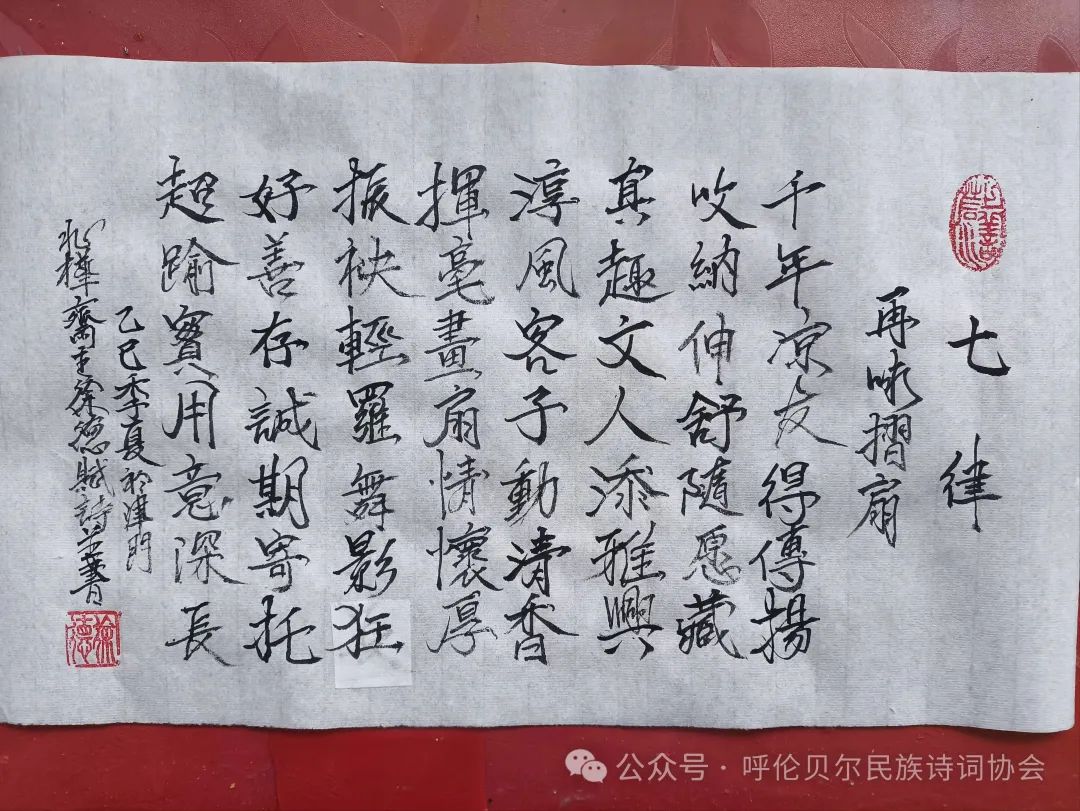 七律
再咏摺扇
千年凉友得傳揚
收納伸舒隨愿藏
真趣文人添雅興
淳風客子動清香
揮毫畫扇情懷厚
振袂輕羅舞影狂
好善存誠期寄托
超踰實用意深長
乙巳季夏於津門
樺齋主徐德賦詩並書
徐德
公众号·呼伦贝尔民族诗词协会